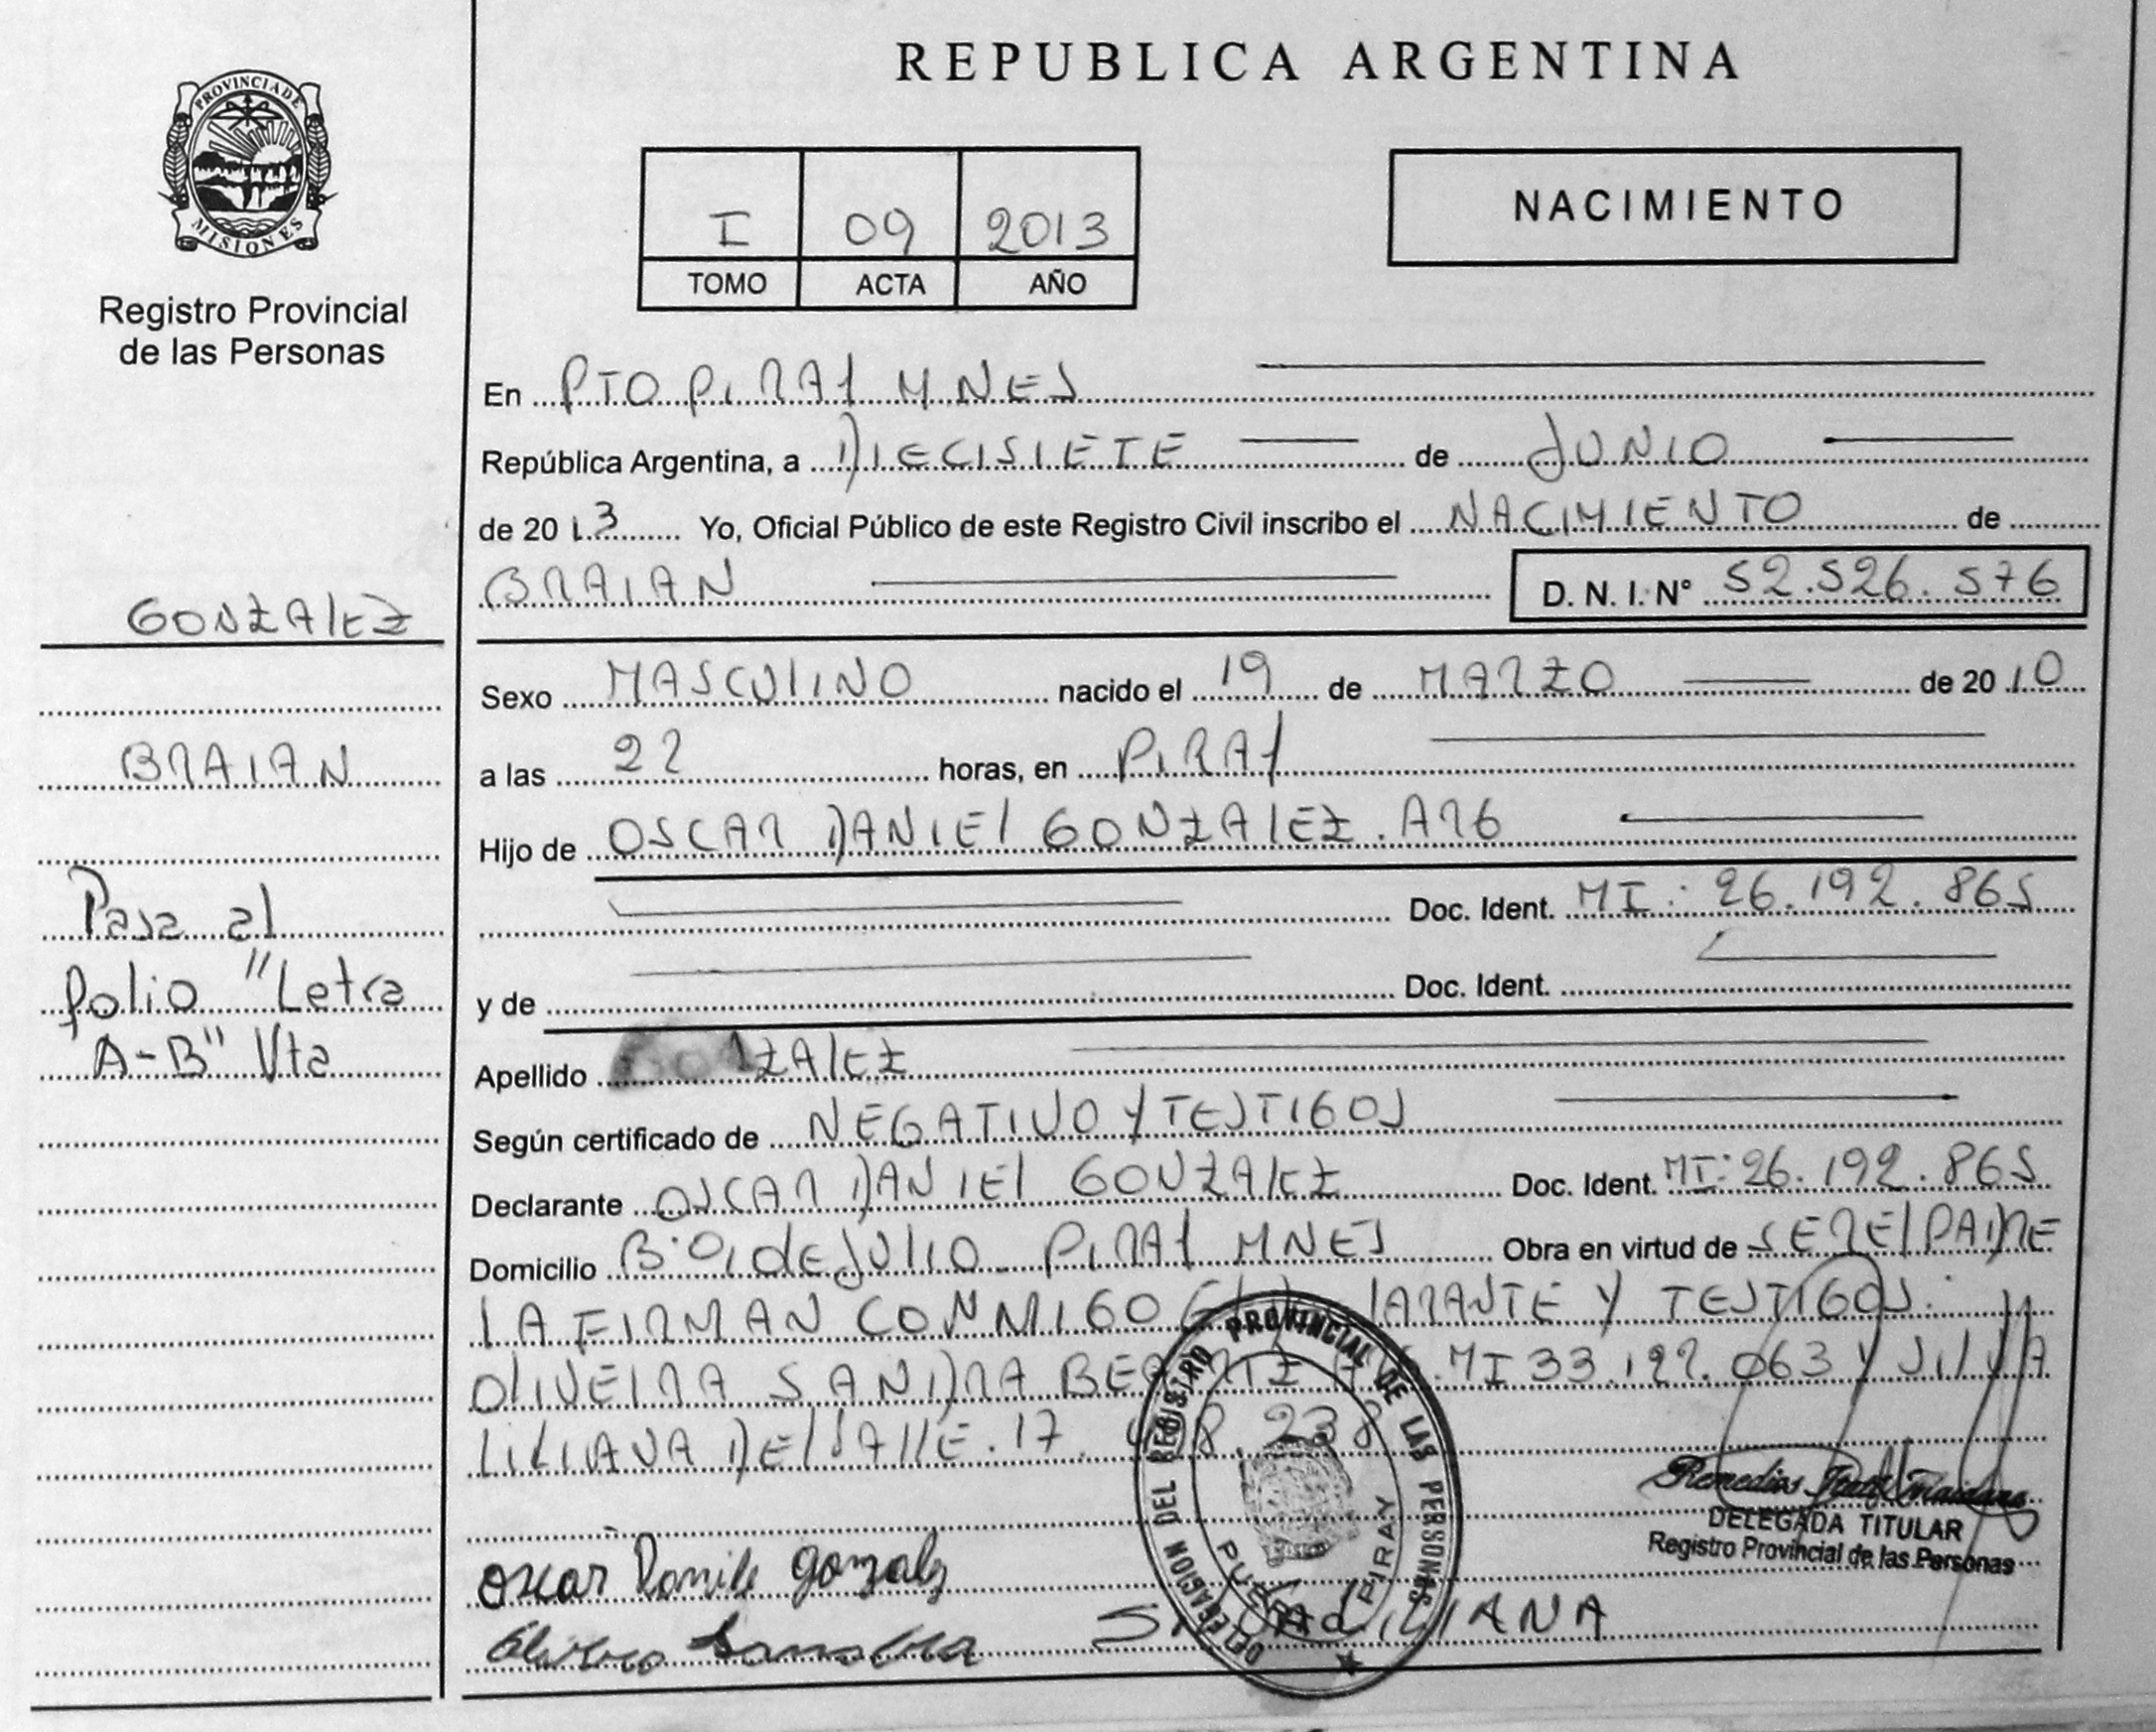 REPUBLICA ARGENTINA
PROVINCIA DE
MISIONES
Registro Provincial
de las Personas
I 09 2013
TOMO ACTA AÑO
NACIMIENTO
En PTO PIRAY MNES
República Argentina, a DIECISIETE de JUNIO
de 2013 Yo, Oficial Público de este Registro Civil inscribo el NACIMIENTO de
BRAIAN D. N. I. N° 52.526.576
GONZALEZ
BRAIAN
Pasa al
folio "Letra
A-B" Vta
Sexo MASCULINO nacido el 19 de MARZO de 2010
a las 22 horas, en PIRAY
Hijo de OSCAR DANIEL GONZALEZ. ARG
Doc. Ident. MI: 26.192.865
y de Doc. Ident.
Apellido GONZALEZ
Según certificado de NEGATIVO Y TESTIGOS
Declarante OSCAR DANIEL GONZALEZ Doc. Ident. MI: 26.192.865
Domicilio B° 01 de JULIO PIRAY MNES Obra en virtud de SER EL PADRE
LA FIRMAN CONMIGO LARANTE Y TESTIGOS:
OLIVEIRA SANDRA MI 33.122.063 Y SILVA
LILIANA DEL VALLE. 17. 238
DELEGACION DEL REGISTRO PROVINCIAL DE LAS PERSONAS
PUERTO PIRAY
Remedios
DELEGADA TITULAR
Registro Provincial de las Personas
Oscar Daniel Gonzalez
SILVA LILIANA